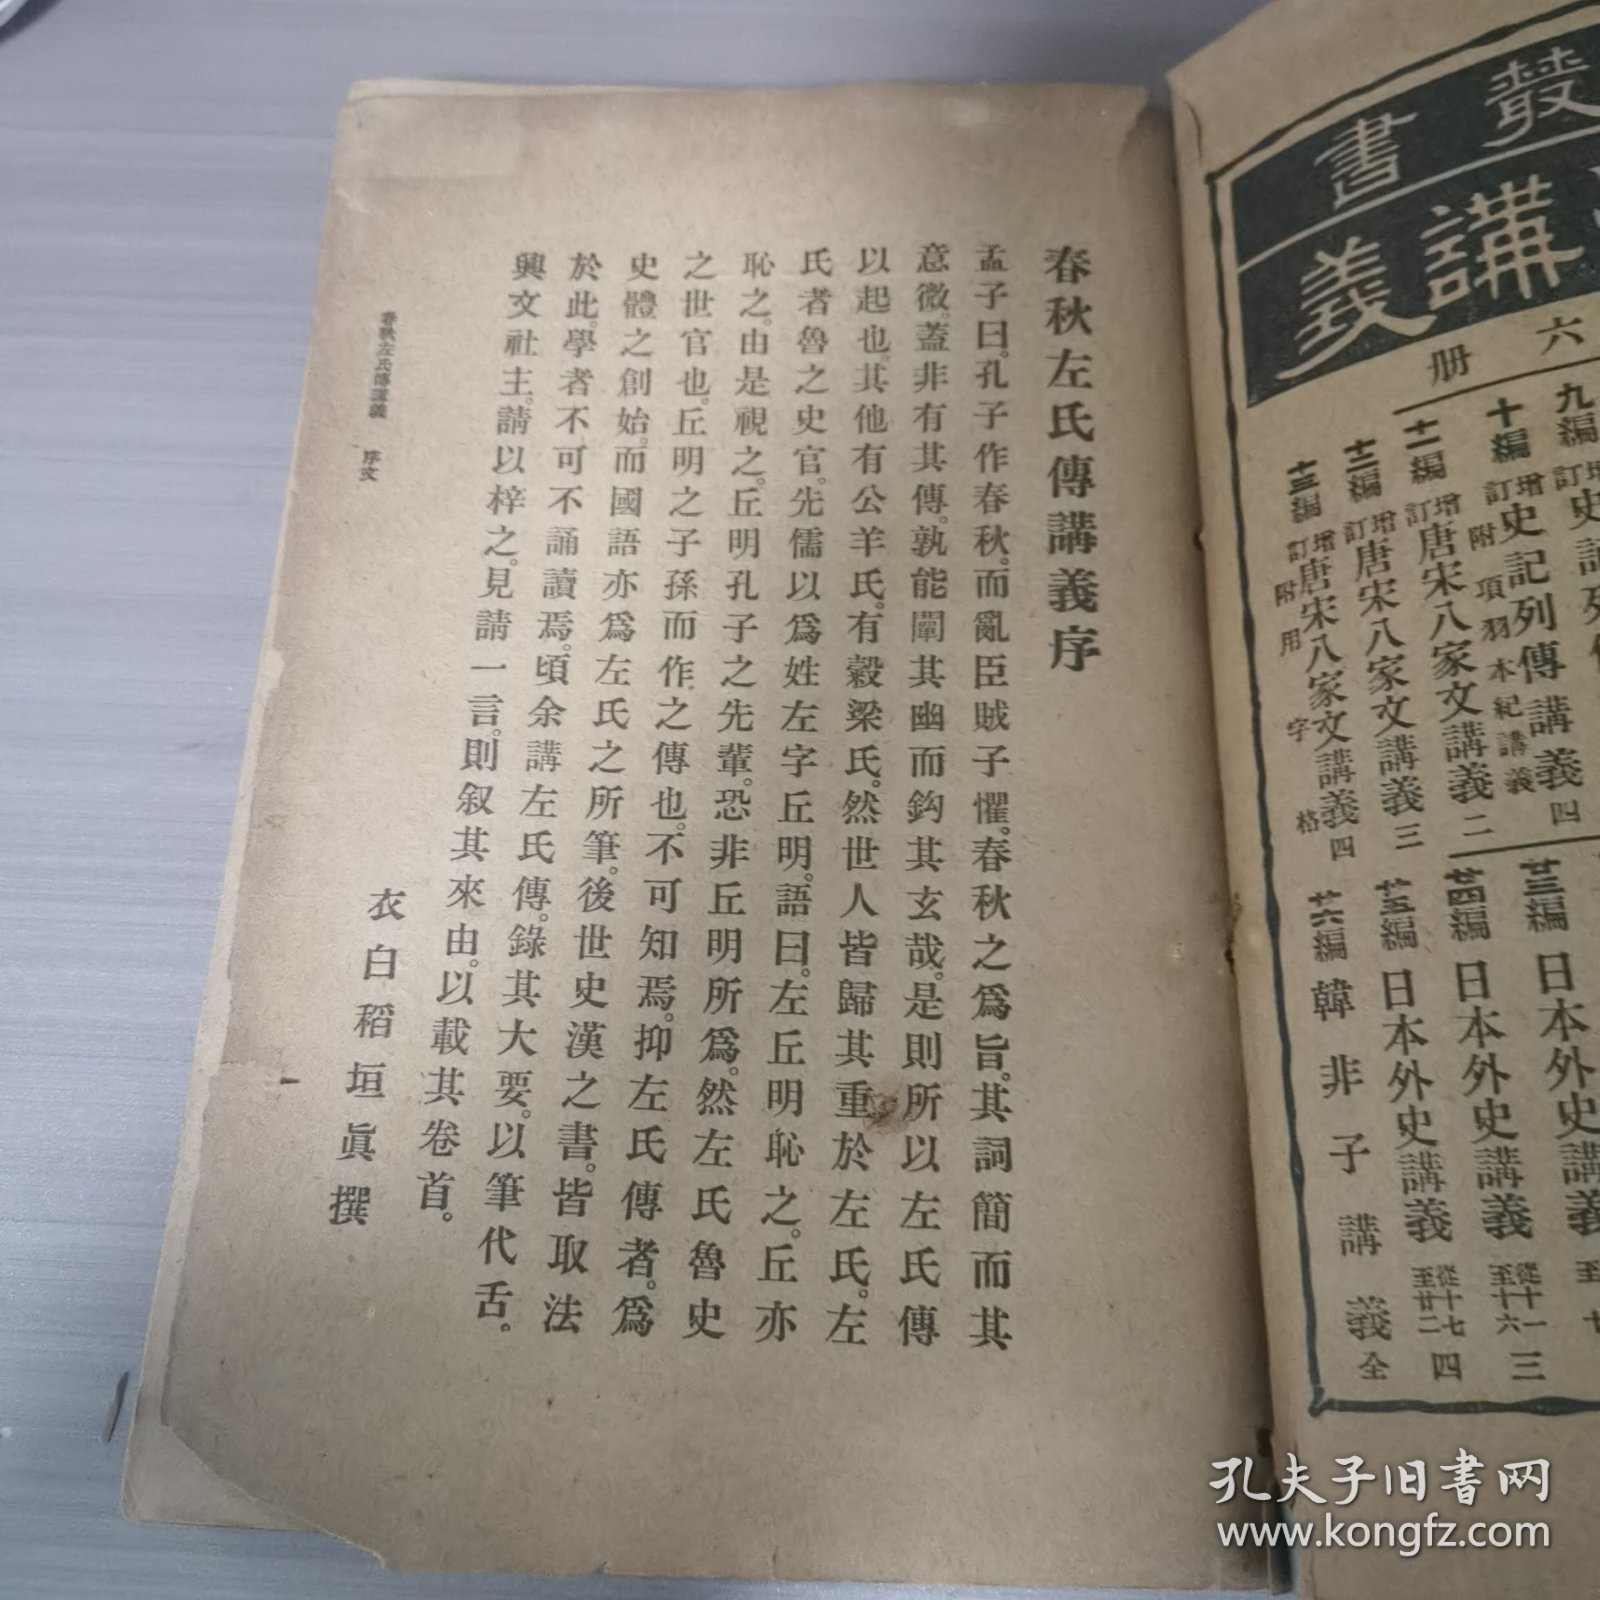 叢書
講義
六册
九編
增訂史記列傳講義四
十編
增訂史記列傳講義
附項羽本紀講義
十一編增訂唐宋八家文講義二
十二編增訂唐宋八家文講義三
十三編增訂唐宋八家文講義四
附用字格
廿三編日本外史講義
廿四編日本外史講義從十一至十六三
廿五編日本外史講義從十七至廿二四
廿六編韓非子講義全
春秋左氏傳講義序
孟子曰。孔子作春秋。而亂臣賊子懼。春秋之爲旨。其詞簡而其
意微。蓋非有其傳。孰能闡其幽而鈎其玄哉。是則所以左氏傳
以起也。其他有公羊氏。有穀梁氏。然世人皆歸其重於左氏。左
氏者魯之史官。先儒以爲姓左字丘明。語曰。左丘明恥之。丘亦
恥之。由是視之。丘明孔子之先輩。恐非丘明所爲。然左氏魯史
之世官也。丘明之子孫而作之傳也。不可知焉。抑左氏傳者。爲
史體之創始。而國語亦爲左氏之所筆。後世史漢之書。皆取法
於此。學者不可不誦讀焉。頃余講左氏傳。錄其大要。以筆代舌。
興文社主。請以梓之。見請一言。則叙其來由。以載其卷首。
衣白稻垣眞撰
春秋左氏傳講義 序文
一
孔夫子旧书网
www.kongfz.com